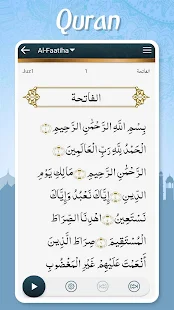 Quran
Al-Faatiha
Juz1
1
الفاتحة
الفاتحة
بِسْمِ اللَّهِ الرَّحْمَٰنِ الرَّحِيمِ
الْحَمْدُ لِلَّهِ رَبِّ الْعَالَمِينَ
الرَّحْمَٰنِ الرَّحِيمِ مَالِكِ يَوْمِ
الدِّينِ إِيَّاكَ نَعْبُدُ وَإِيَّاكَ
نَسْتَعِينُ اهْدِنَا الصِّرَاطَ
الْمُسْتَقِيمَ صِرَاطَ الَّذِينَ
أَنْعَمْتَ عَلَيْهِمْ غَيْرِ الْمَغْضُوبِ